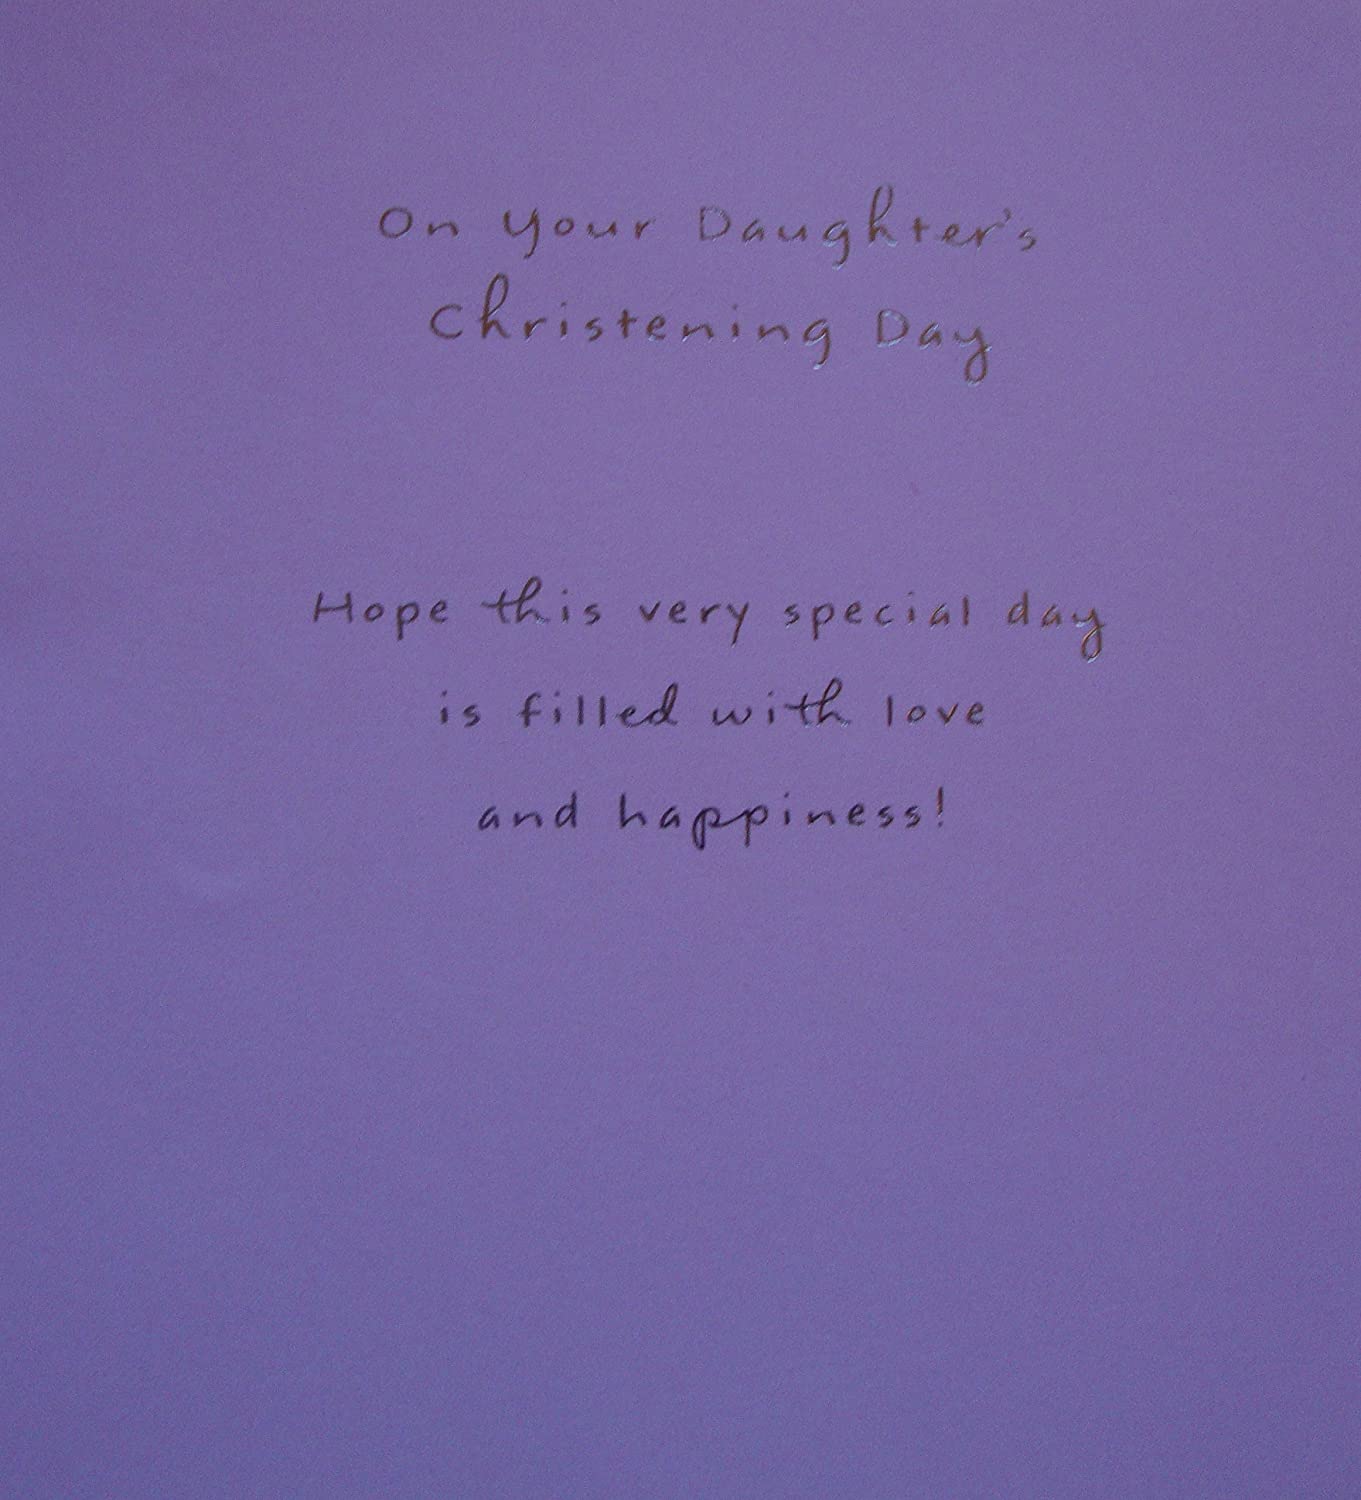 On Your Daughter's
Christening Day
Hope this very special day
is filled with love
and happiness!